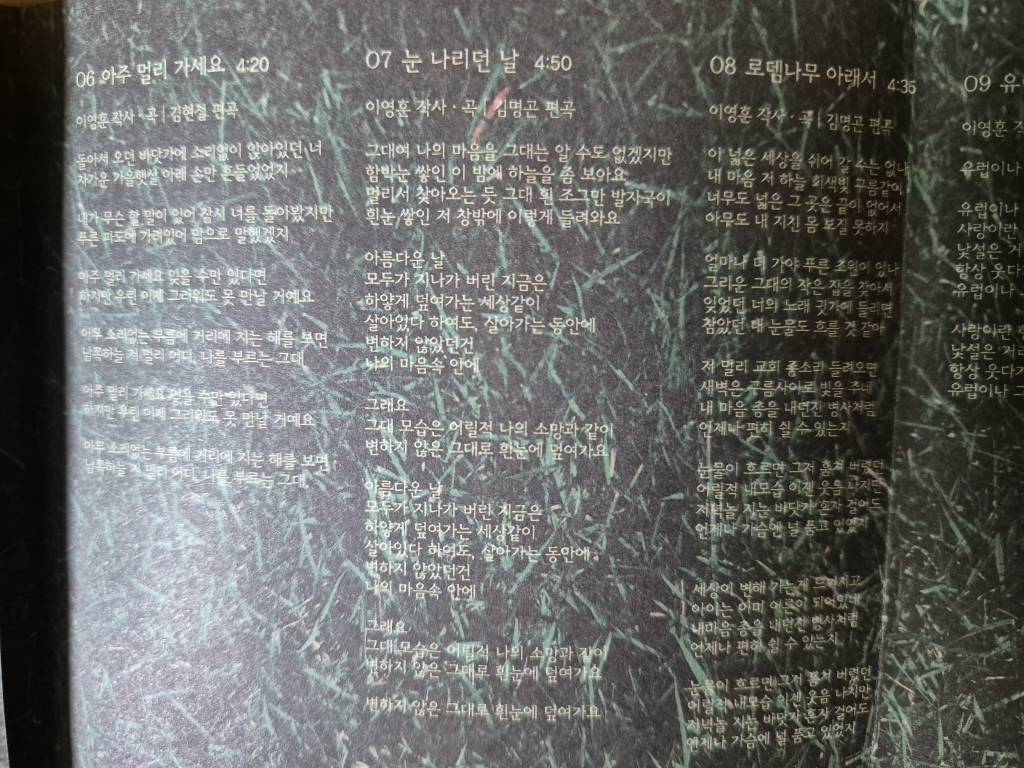 06 아주 멀리 가세요 4:20
이영훈 작사 · 곡 | 김현철 편곡
돌아서 오던 바닷가에 소리없이 앉아있던 너
차가운 가을햇살 아래 손만 흔들었었지
내가 무슨 할 말이 있어 잠시 너를 돌아봤지만
푸른 파도에 가려있어 맘으로 말했겠지
아주 멀리 가세요 잊을 수만 있다면
하지만 우린 이제 그리워도 못 만날 거예요
아무 소리없는 부름에 거리에 지는 해를 보면
남쪽하늘 저 멀리 어디, 나를 부르는 그대
아주 멀리 가세요 잊을 수만 있다면
하지만 우린 이제 그리워도 못 만날 거예요
아무 소리없는 부름에 거리에 지는 해를 보면
남쪽하늘 저 멀리 어디, 나를 부르는 그대
07 눈 나리던 날 4:50
이영훈 작사 · 곡 | 김명곤 편곡
그대여 나의 마음을 그대는 알 수도 없겠지만
함박눈 쌓인 이 밤에 하늘을 좀 보아요
멀리서 찾아오는 듯 그대 흰 조그만 발자국이
흰눈 쌓인 저 창밖에 이렇게 들려와요
아름다운 날
모두가 지나가 버린 지금은
하얗게 덮여가는 세상같이
살아있다 하여도, 살아가는 동안에
변하지 않았던건
나의 마음속 안에
그래요
그대 모습은 어릴적 나의 소망과 같이
변하지 않은 그대로 흰눈에 덮여가요
아름다운 날
모두가 지나가 버린 지금은
하얗게 덮여가는 세상같이
살아있다 하여도, 살아가는 동안에
변하지 않았던건
나의 마음속 안에
그래요
그대 모습은 어릴적 나의 소망과 같이
변하지 않은 그대로 흰눈에 덮여가요
변하지 않은 그대로 흰눈에 덮여가요
08 로뎀나무 아래서 4:35
이영훈 작사 · 곡 | 김명곤 편곡
이 넓은 세상을 쉬어 갈 수는 없나
내 마음 저 하늘 회색빛 구름같이
너무도 넓은 그 곳은 끝이 없어서
아무도 내 지친 몸 보질 못하지
얼마나 더 가야 푸른 초원이 있나
그리운 그대의 작은 집을 찾아서
잊었던 너의 노래 귓가에 들리면
참았던 내 눈물도 흐를 것 같아
저 멀리 교회 종소리 들려오면
새벽은 구름사이로 빛을 주네
내 마음 총을 내던진 병사처럼
언제나 편히 쉴 수 있는지
눈물이 흐르면 그저 훔쳐 버렸던
어릴적 내모습 이젠 웃음 나지만
저녁놀 지는 바닷가 혼자 걸어도
언제나 가슴에 널 품고 있었지
세상이 변해 가는게 느껴지고
아이는 이미 어른이 되어있네
내마음 총을 내던진 병사처럼
언제나 편히 쉴 수 있는지
눈물이 흐르면 그저 훔쳐 버렸던
어릴적 내모습 이젠 웃음 나지만
저녁놀 지는 바닷가 혼자 걸어도
언제나 가슴에 널 품고 있었지
09 유
이영훈 작
유럽이나
유럽이나
사랑이란
낯설은 거
항상 웃다
유럽이나
사랑이란
낯설은 거리
항상 웃다가
유럽이나 그